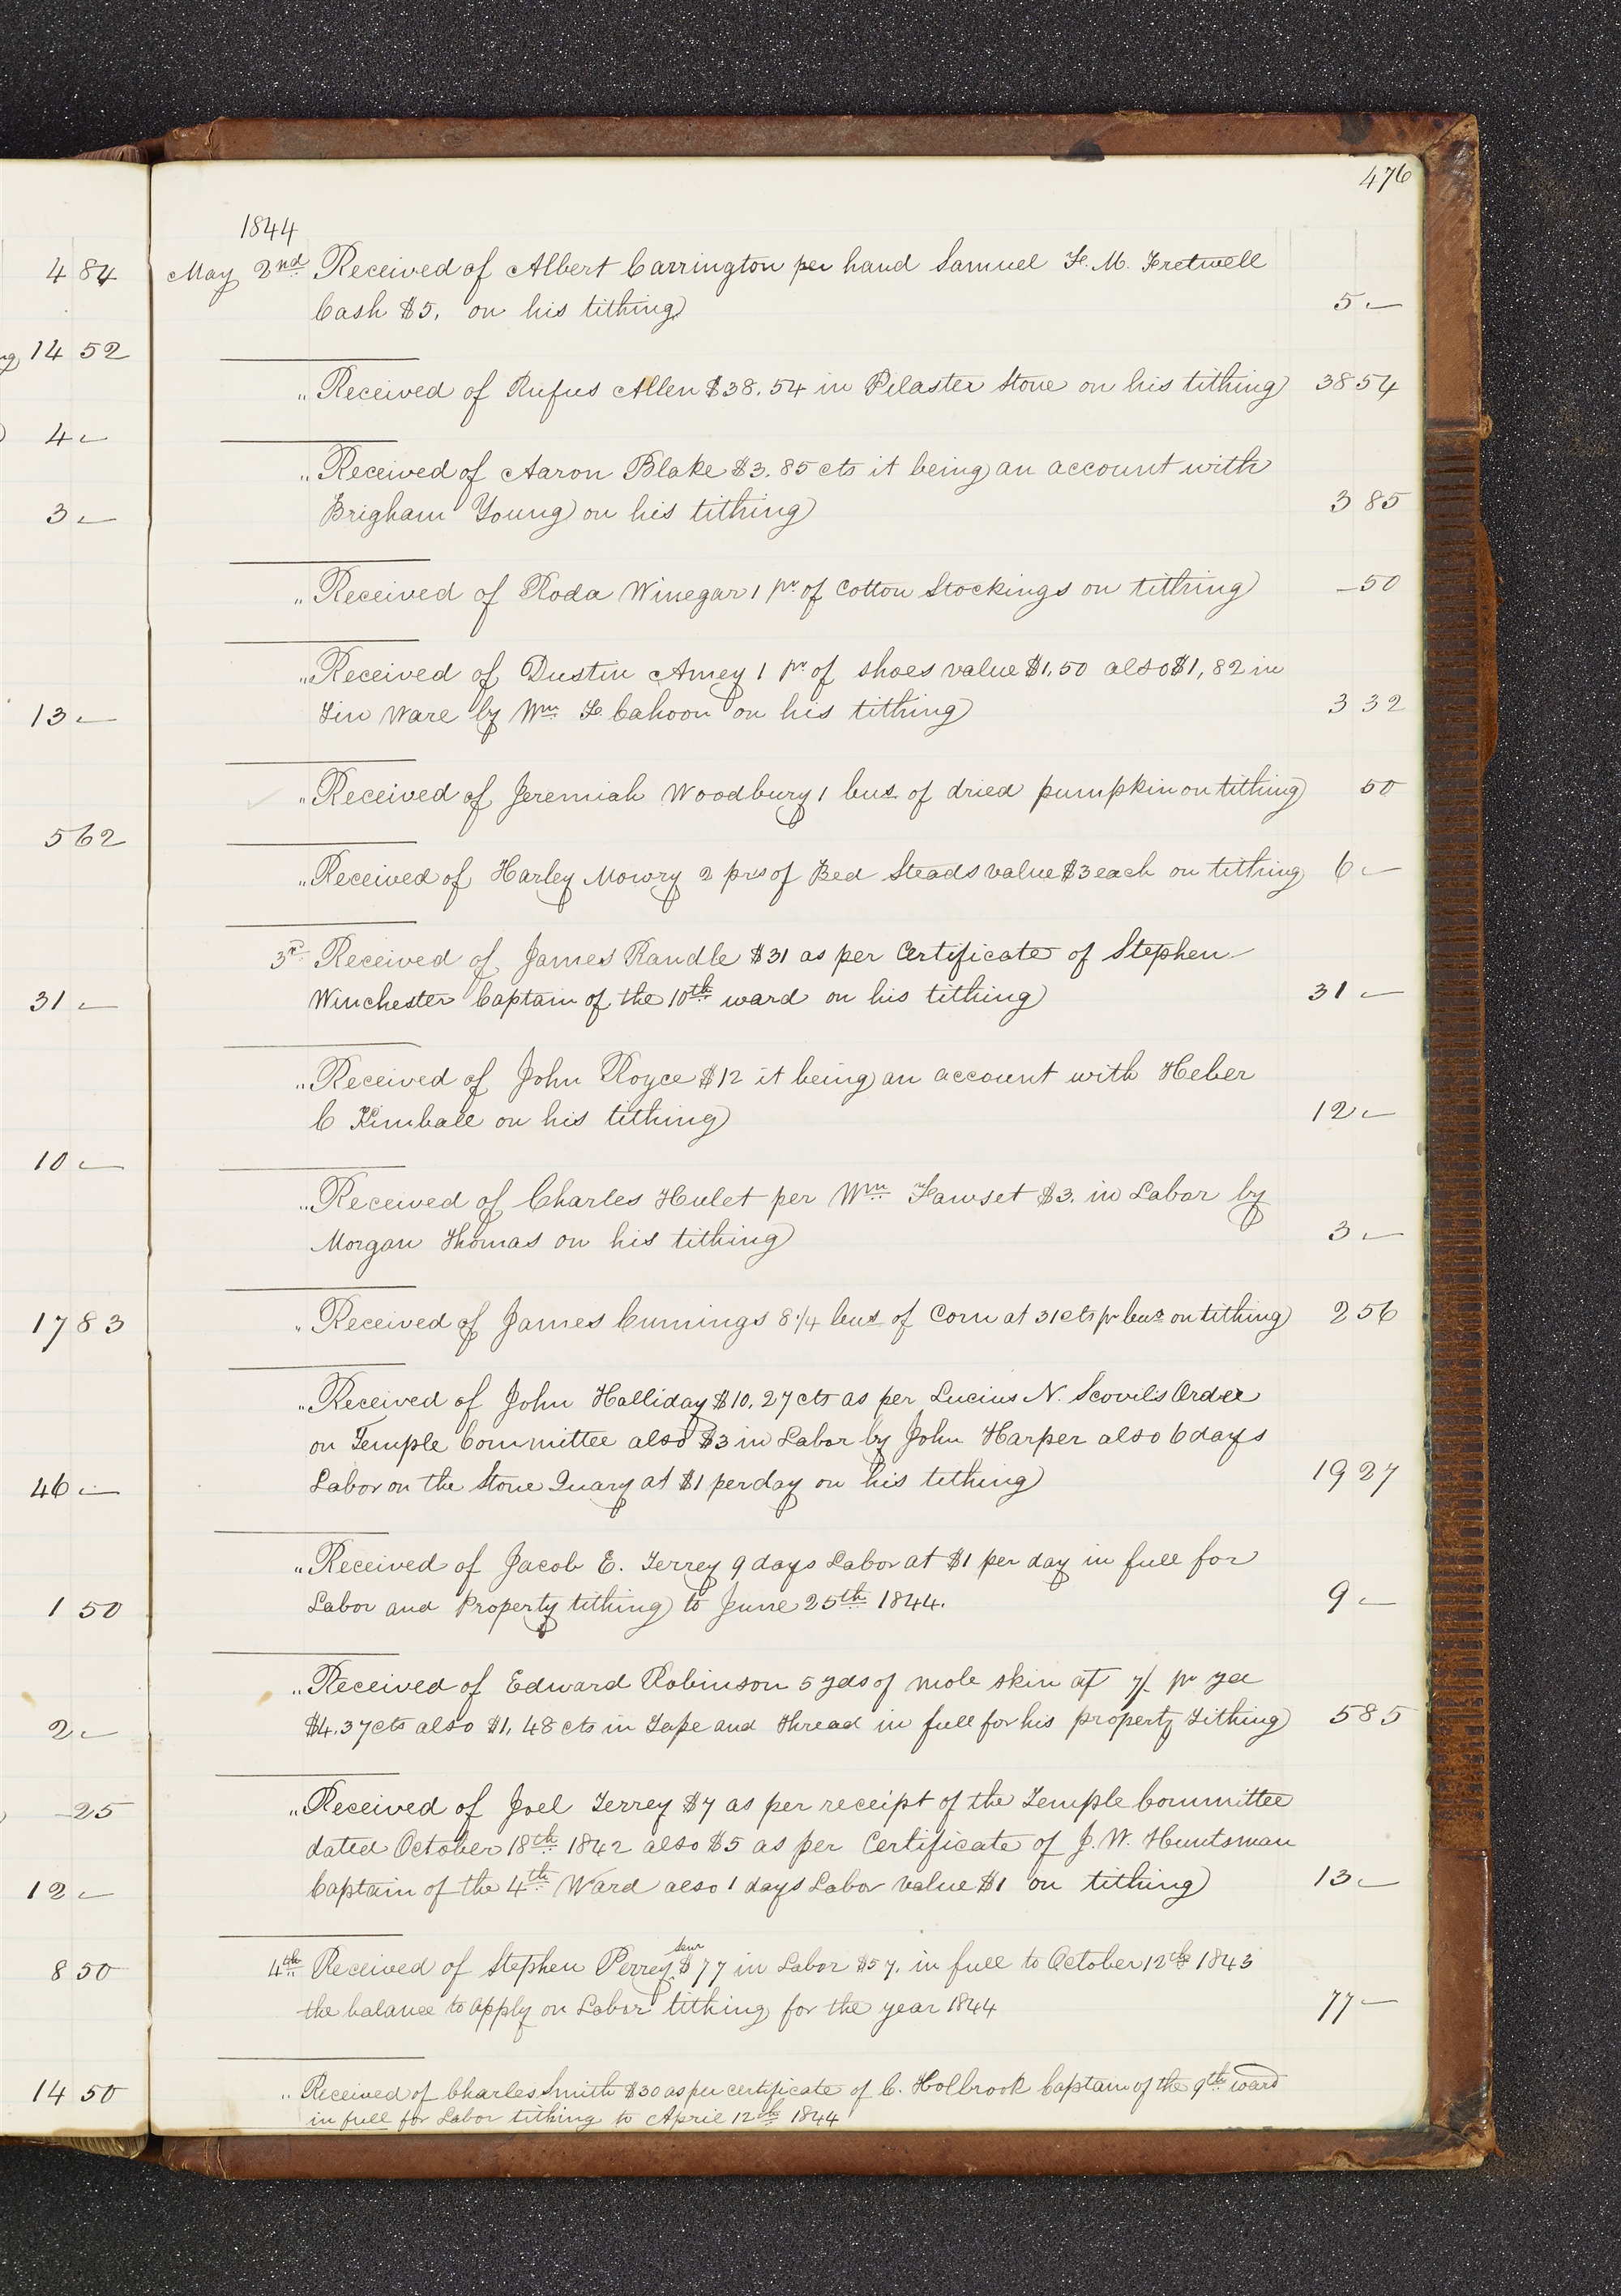 476
1844
May 2nd Received of Albert Carrington per hand Samuel F. M. Fretwell
Cash $5. on his tithing 5 —
" Received of Rufus Allen $38.54 in Pilaster Stone on his tithing 38 54
" Received of Aaron Blake $3.85 cts it being an account with
Brigham Young on his tithing 3 85
" Received of Roda Winegar 1 pr of Cotton Stockings on tithing — 50
" Received of Dustin Amey 1 pr of shoes value $1,50 also $1,82 in
Tin Ware by Wm F. Cahoon on his tithing 3 32
" Received of Jeremiah Woodbury 1 bus of dried pumpkin on tithing 50
" Received of Harley Mowry 2 prs of Bed Steads value $3 each on tithing 6 —
3rd Received of James Randle $31 as per Certificate of Stephen
Winchester Captain of the 10th ward on his tithing 31 —
" Received of John Royce $12 it being an account with Heber
C Kimball on his tithing 12 —
" Received of Charles Hulet per Wm Fawset $3. in Labor by
Morgan Thomas on his tithing 3 —
" Received of James Cumings 8 1/4 bus of Corn at 31 cts pr bus on tithing 2 56
" Received of John Halliday $10.27 cts as per Lucius N. Scovils Order
on Temple Committee also $3 in Labor by John Harper also 6 days
Labor on the Stone Quary at $1 per day on his tithing 19 27
" Received of Jacob E. Terrey 9 days Labor at $1 per day in full for
Labor and Property tithing to June 25th 1844. 9 —
" Received of Edward Robinson 5 yds of mole skin at 7/ pr yd
$4.37 cts also $1,48 cts in Tape and thread in full for his property Tithing 5 85
" Received of Joel Terrey $7 as per receipt of the Temple Committee
dated October 18th 1842 also $5 as per Certificate of J. W. Huntsman
Captain of the 4th Ward also 1 days Labor value $1 on tithing 13 —
4th Received of Stephen Perrey Senr $77 in Labor $57, in full to October 12th 1843
the balance to apply on Labor tithing for the year 1844 77 —
" Received of Charles Smith $30 as per certificate of C. Holbrook Captain of the 9th ward
in full for Labor tithing to April 12th 1844
4 84
14 52
4 —
3 —
13 —
5 62
31 —
10 —
17 83
46 —
1 50
2 —
— 25
12 —
8 50
14 50